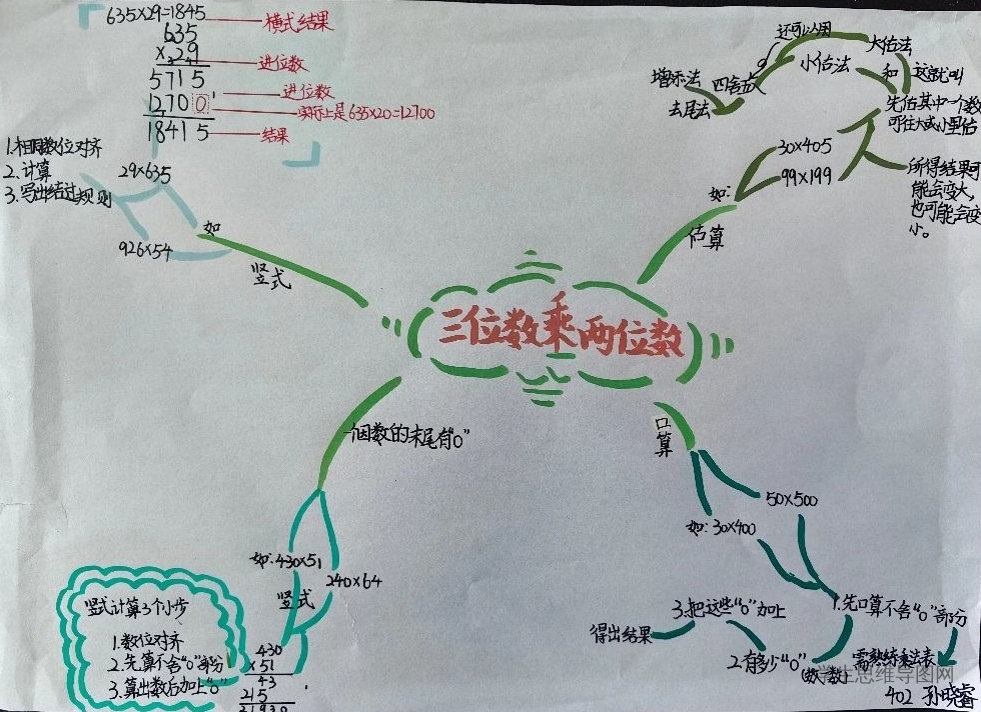 635×29=1845
横式结果
635
×29
进位数
5715
12700
进位数
实际上是635×20=12700
18415
结果
1.相同数位对齐
2.计算
3.写出结过规则
29×635
926×54
如
竖式
三位数乘两位数
还可以用
大估法
小估法
和
这就叫
增添法
四舍五入
去尾法
先估其中一个数
可往大或小里估
30×405
99×199
如:
估算
所得结果可
能会变大,
也可能会变
小。
一个因数的末尾有“0”
如:430×51
240×64
竖式
430
×51
43
215
21930
竖式计算3个小步
1.数位对齐
2.先算不含“0”部分
3.算出数后加上“0”
口算
50×500
如:30×400
1.先口算不含“0”部分
需熟练乘法表
2.有多少“0”
(数个数)
3.把这些“0”加上
得出结果
学生思维导图网
402 孙晓睿